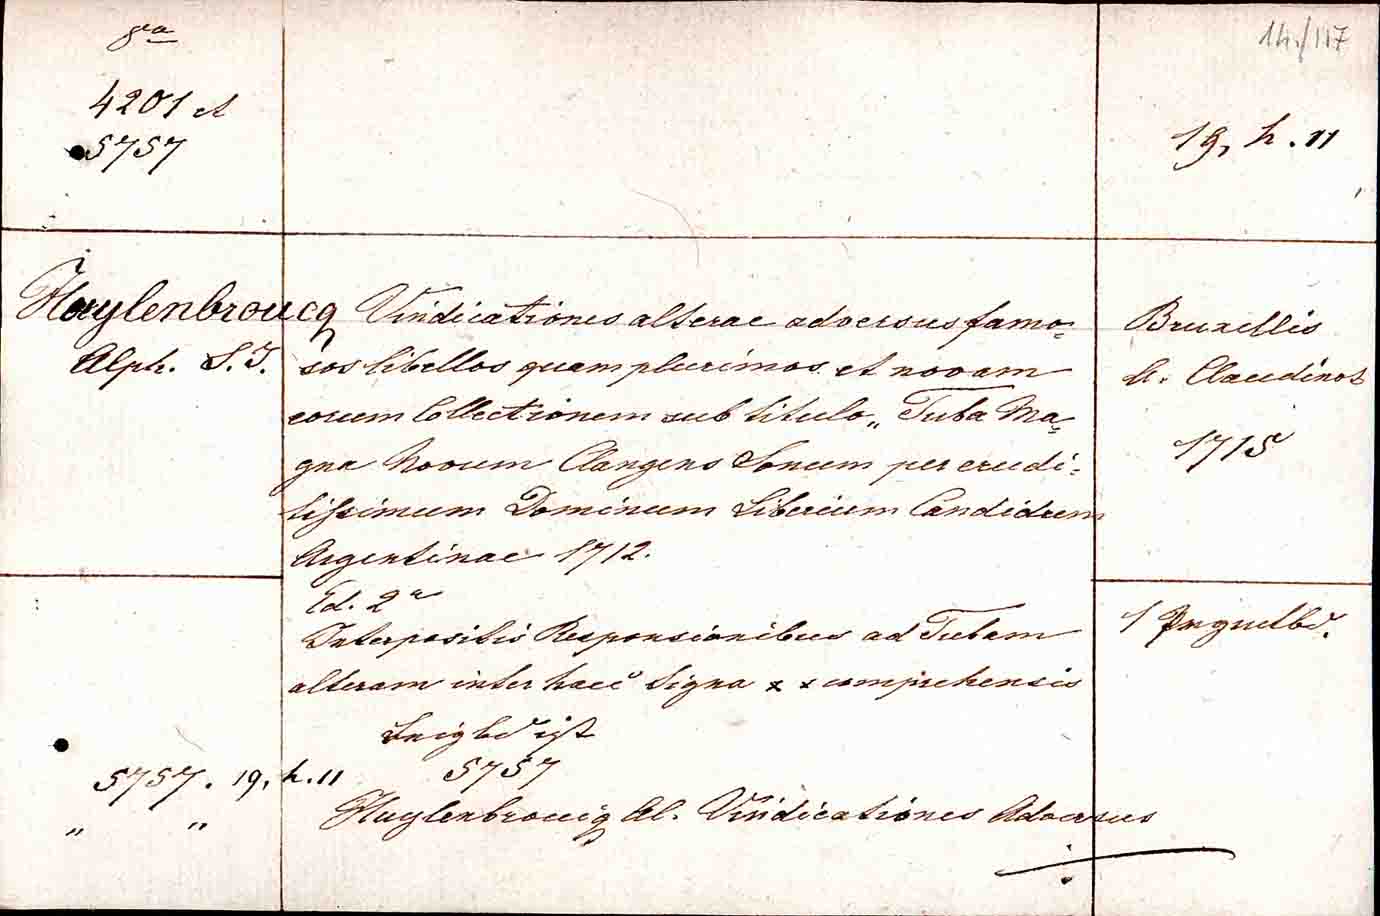 8va
4201 et
5757
14./117
19, h. 11
Huylenbroucq
Alph. S. J.
Vindicationes alterae adversus famo-
sos libellos quam plurimos et novam
eorum Collectionem sub titulo „ Tuba Ma-
gna Novum Clangens Sonum per erudi-
tissimum Dominum Liberium Candidum
Argentinae 1712.
Ed. 2a
Interpositis Responsionibus ad Tubam
alteram inter haec Signa x x comprehensis
5757
Huylenbroucq Al. Vindicationes Adversus
Bruxellis
A. Claudinot
1715
1
5757. 19, h. 11
„ „